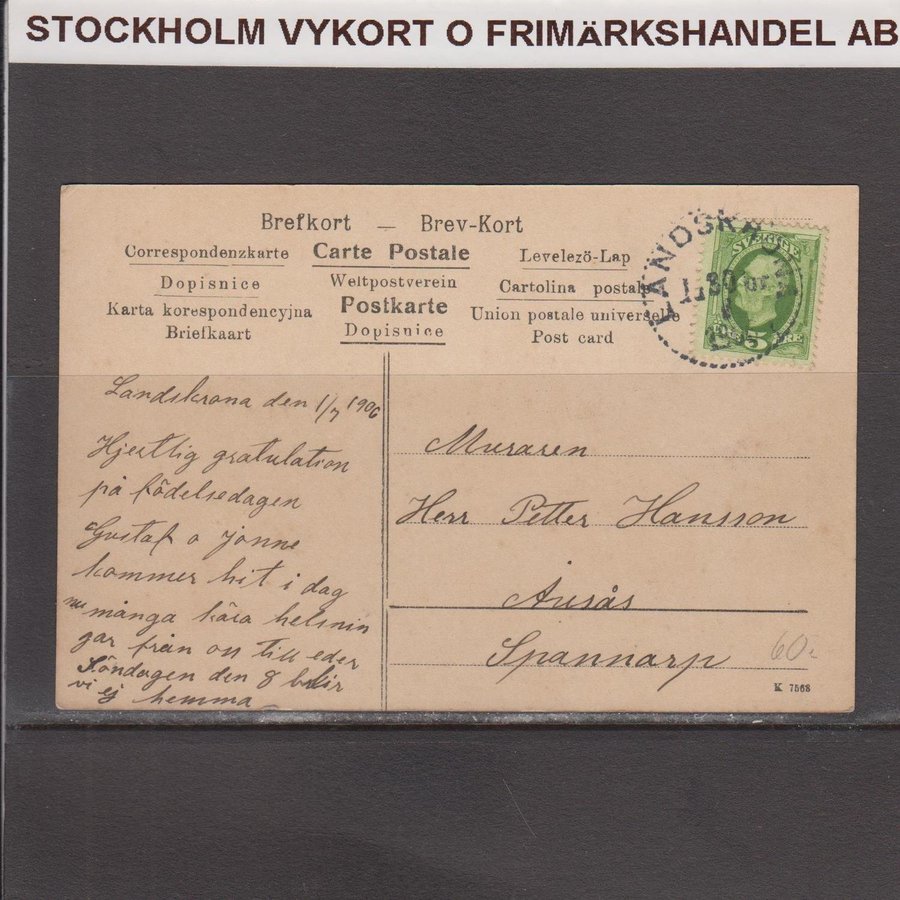 STOCKHOLM VYKORT O FRIMÄRKSHANDEL AB
Brefkort — Brev-Kort
Correspondenzkarte Carte Postale Levelezö-Lap
Dopisnice Weltpostverein Cartolina postale
Karta korespondencyjna Postkarte Union postale universelle
Briefkaart Dopisnice Post card
LANDSKRONA
SVERIGE
5 ÖRE
Landskrona den 1/7 1906
Hjertlig gratulation
på födelsedagen
Gustaf o Jonne
kommer hit i dag
nu många kära helsnin
gar från oss till eder
Söndagen den 8 blir
vi ej hemma
Muraren
Herr Petter Hansson
Ausås
Spannarp
60:-
K 7568